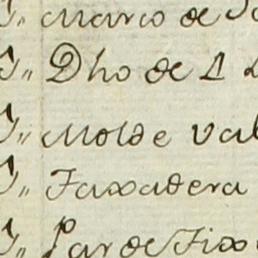 J,, Marco de
J,, Dho de 1
J,, Molde Val
J,, Faxadera
J,, Par de Fix